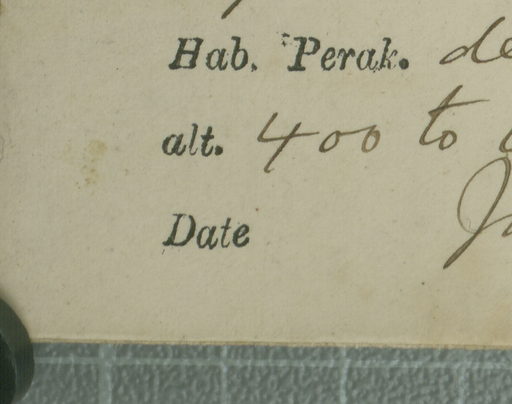 Hab. Perak.
alt. 400 to
Date